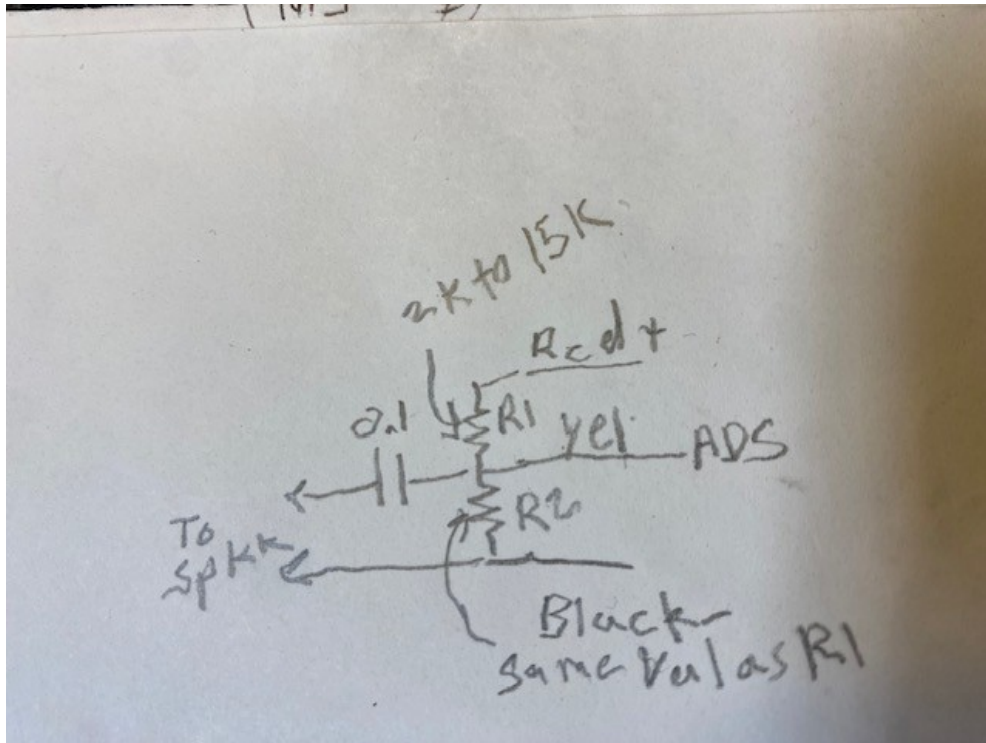 2K to 15K
Red +
0.1
R1
yel
ADS
To
R2
Black -
same Val as R1